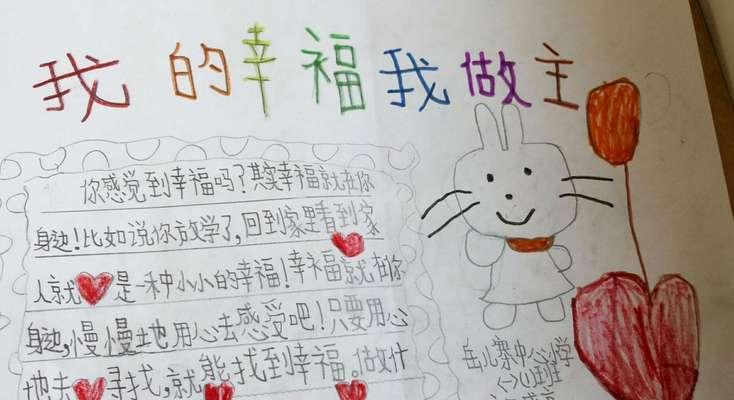 我的幸福我做主
你感觉到幸福吗？其实幸福就在你
身边！比如说你放学了，回到家里看到家
人就是一种小小的幸福！幸福就在你
身边，慢慢地用心去感受吧！只要用心
地去寻找，就能找到幸福。做什
岳儿寨中心小学